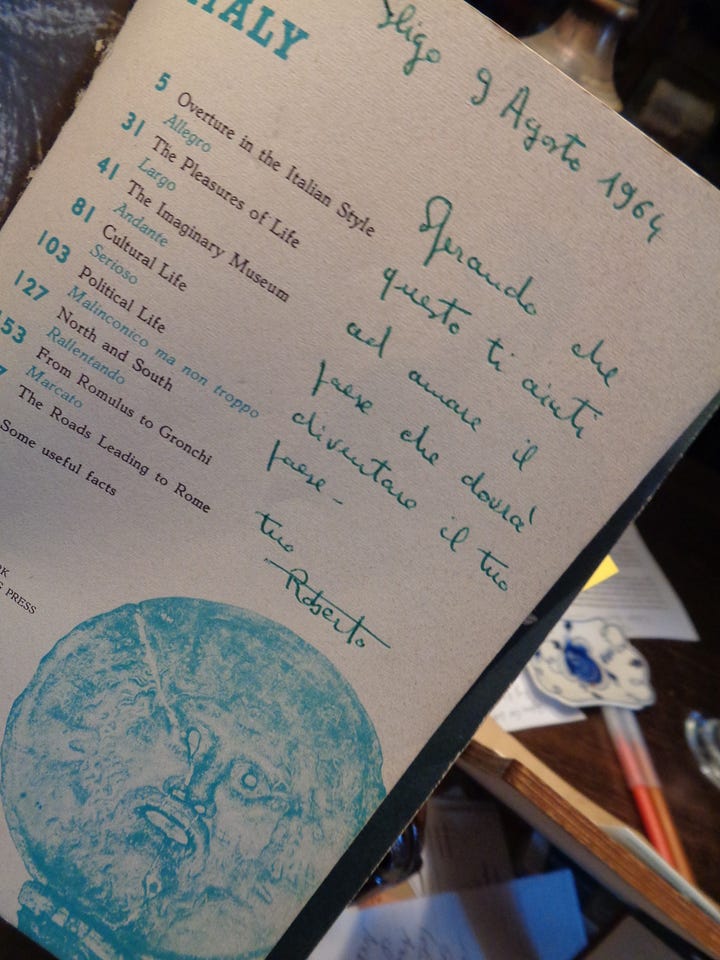 ITALY
5 Overture in the Italian Style
Allegro
31 The Pleasures of Life
Largo
41 The Imaginary Museum
Andante
81 Cultural Life
Serioso
103 Political Life
Malinconico ma non troppo
127 North and South
Rallentando
153 From Romulus to Gronchi
Marcato
7 The Roads Leading to Rome
Some useful facts
RK
PRESS
Sligo 9 Agosto 1964
Sperando che
questo ti aiuti
ad amare il
paese che dovrà
diventare il tuo
paese -
tuo
Roberto